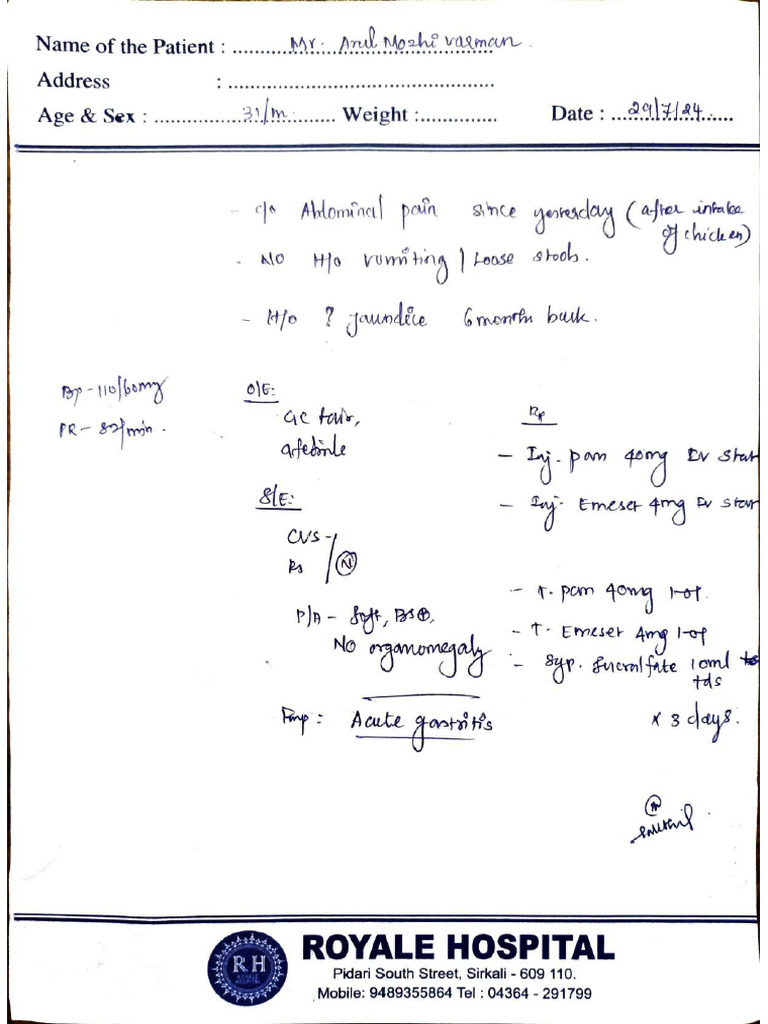 Name of the Patient : Mr. Arul Mozhi varman.
Address :
Age & Sex : 31/m. Weight : Date : 29/7/24
- c/o Abdominal pain since yesterday (after intake of chicken)
- No H/o vomiting / Loose stools.
- H/o ? jaundice 6 months back.
Bp - 110/60mg
PR - 82/min.
O/E:
GC fair,
afebrile
S/E:
CVS -
Rs / N
P/A - Soft, BS+.
No organomegaly
Imp : Acute gastritis
Rx
- Inj. pan 40mg Iv stat
- Inj. Emeset 4mg Iv stat
- T. pan 40mg 1-01.
- T. Emeset 4mg 1-01
- Syp. Sucralfate 10ml
tds
x 3 days.
ROYALE HOSPITAL
RH
Pidari South Street, Sirkali - 609 110.
Mobile: 9489355864 Tel : 04364 - 291799